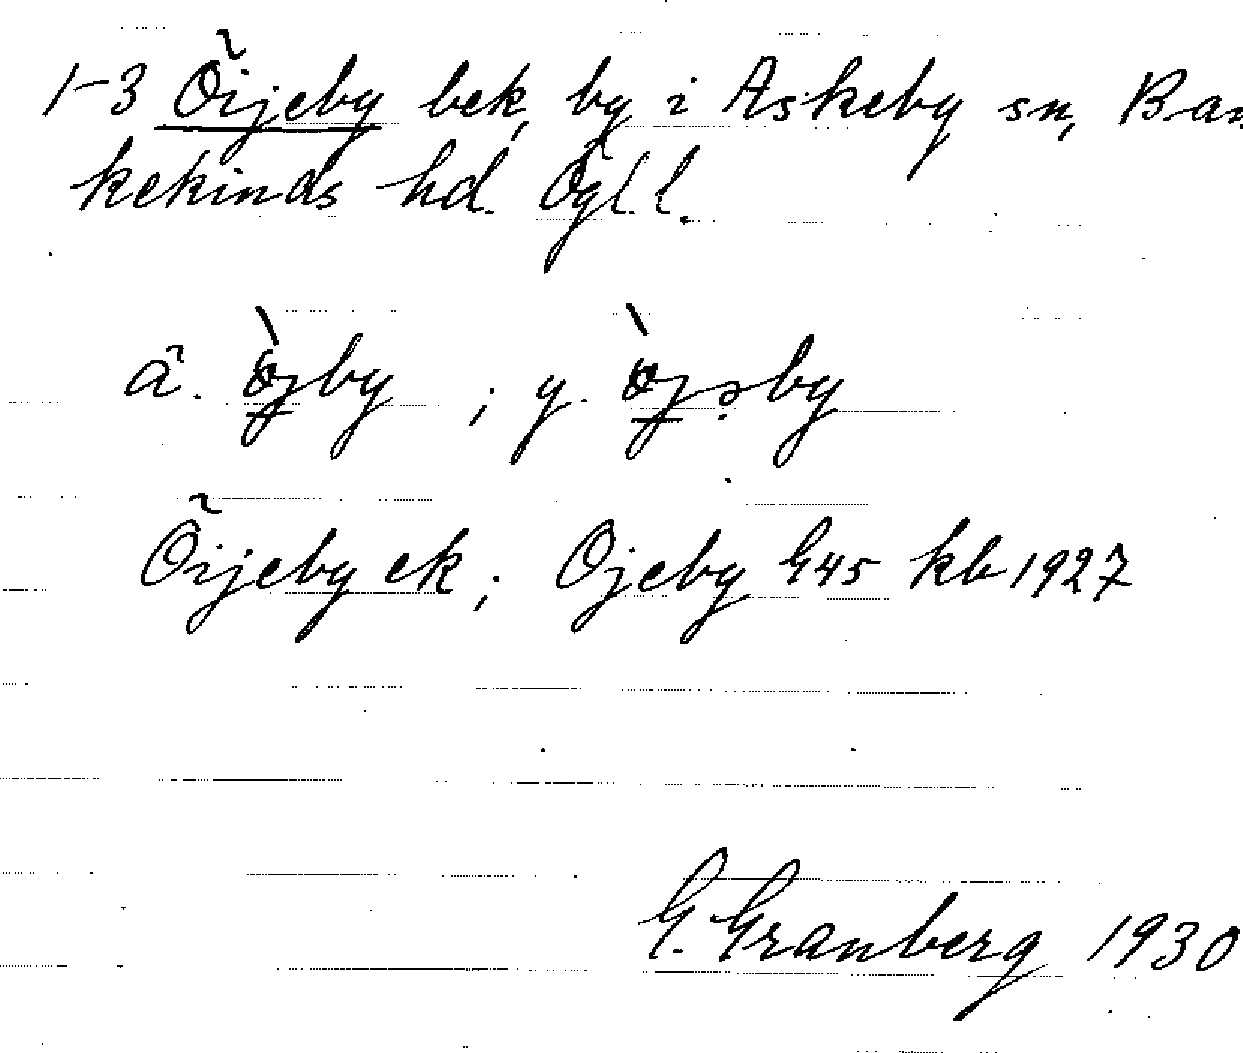 1-3 Öijeby bek, by i Askeby sn, Ban
kekinds hd. Ögl l.
ä. ö̀jby ; y. ö̀jəby
Öijeby ek; Öjeby G45 kb 1927
G. Granberg 1930